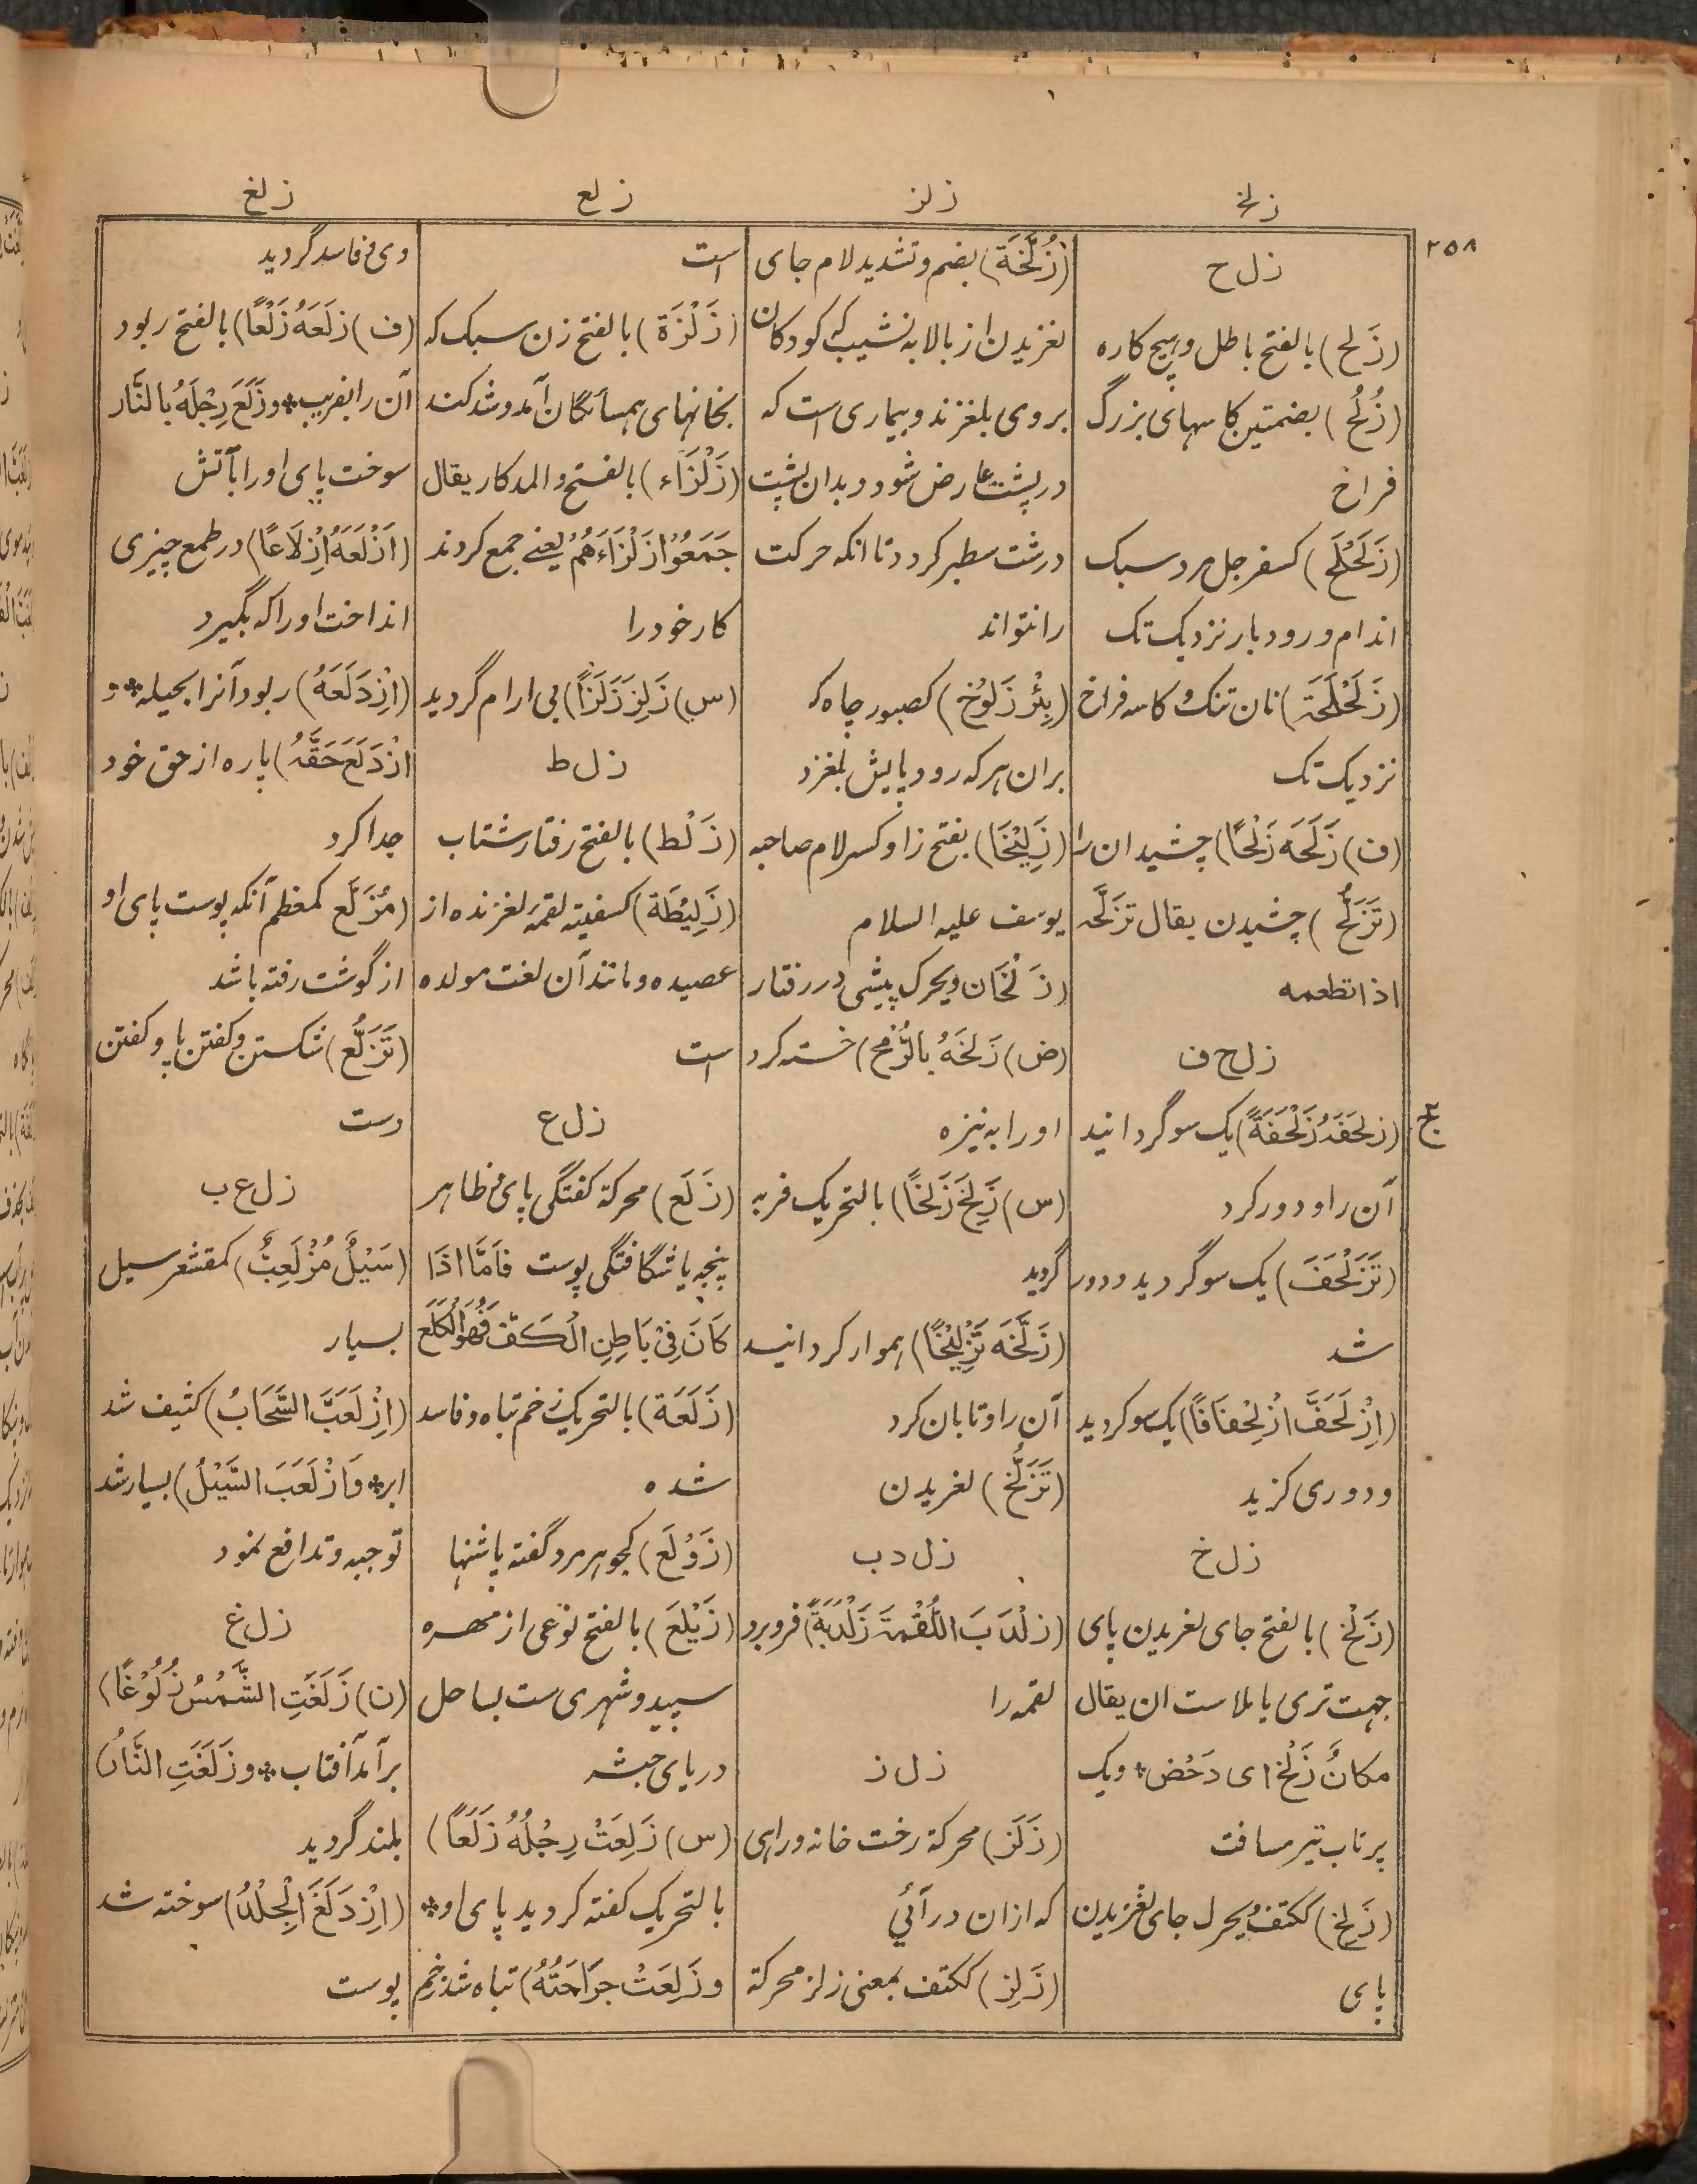 زلخ
زلز
زلع
زلغ
۲۵۸
زل ح
(زَلح) بالفتح باطل و هیچ کاره
(زُلُح) بضمتین کاسهای بزرگ
فراخ
(زَلَحْلَح) کسفرجل مرد سبک
اندام و رودبار نزدیک تک
(زَلَحْلَحَة) نان تنک و کاسه فراخ
نزدیک تک
(ف) زَلَحَه زَلْحًا) چشید ان را
(تَزَلُّح) چشیدن یقال تَزَلَّحَه
اذا تطعمه
زل ح ف
(زلحَفَهُ زَلْحَفَةً) یک سو گردانید
آن را و دور کرد
(تَزَلْحَفَ) یک سو گردید و دور
شد
(اِزْلَحَفَّ ازْلِحْفَافًا) یکسو کردید
و دوری کزید
زل خ
(زَلْخ) بالفتح جای لغزیدن پای
جهت تری یا ملاست ان یقال
مکانٌ زَلْخ ای دَحْض * ویک
پرتاب تیر مسافت
(زَلِخ) ککتف و یحرک جای لغزیدن
پای
(زُلَّخَة) بضم و تشدید لام جای
لغزیدن از بالا به نشیب که کودکان
بروی بلغزند و بیماری است که
در پشت عارض شود و بدان پشت
درشت سطبر کردد تا انکه حرکت
را نتواند
(بِئْر زَلوُخ) کصبور چاه که
بران هر که رود پایش بلغزد
(زَلِیْخَا) بفتح زا و کسر لام صاحبه
یوسف علیه السلام
(زَلْخَان و یحرک پیشی در رفتار
(ض) زَلَخَهُ بالرُّمْح) خسته کرد
او را به نیزه
(س) زَلِخَ زَلَخًا) بالتحریک فربه
گردید
(زَلَّخَه تَزْلِیْخًا) هموار کردانید
آن را و تابان کرد
(تَزَلُّخ) لغزیدن
زل د ب
(زلْدَبَ اللُّقْمَةَ زَلْدَبَةً) فرو برد
لقمه را
زل ز
(زَلَز) محرکة رخت خانه و راهی
که ازان در آئی
(زَلِز) ککتف بمعنی زلز محرکة
است
(زَلْزَة) بالفتح زن سبک که
بخانهای همسائگان آمد و شد کند
(زَلْزَاء) بالفتح و المد کار یقال
جَمَعُوْا زَلْزَاءَهُمْ یعنے جمع کردند
کار خود را
(س) زَلِزَ زَلَزًا) بی ارام گردید
زل ط
(زَلْط) بالفتح رفتار شتاب
(زَلِیْطَة) کسفینه لقمۀ لغزنده از
عصیده و مانند آن لغت مولده
است
زل ع
(زَلَع) محرکة کفتگی پای در ظاهر
پنجه یا شگافتگی پوست فَاَمَّا اذَا
کَانَ فِیْ بَاطِنِ الْکَفّ فَهُوَ الْکَلَع
(زَلَعَة) بالتحریک زخم تباه و فاسد
شده
(زَوْلَع) کجوهر مرد گفته پاشنها
(زَیْلَع) بالفتح نوعی از مهره
سپید و شهری ست بساحل
دریای حبشه
(س) زَلِعَتْ رِجْلُهُ زَلَعًا)
بالتحریک کفته کردید پای او *
و زَلِعَتْ جرَاحَتُهُ) تباه شد زخم
وی و فاسد گردید
(ف) زلَعَهُ زَلْعًا) بالفتح ربود
آن را بفریب * و زَلَعَ رِجْلَهُ بالنَّار
سوخت پای او را بآتش
(اَزْلَعَهُ اِزْلَاعًا) در طمع چیزی
انداخت او را که بگیرد
(اِزْدَلَعَهُ) ربود آنرا بحیله * و
ازْدَلَعَ حَقَّهُ) پاره از حق خود
جدا کرد
(مُزَلَّع کمعظم آنکه پوست پای او
از گوشت رفته باشد
(تَزَلُّع) شکستن و کفتن پا و کفتن
دست
زل ع ب
(سَیْلٌ مُزْلَعِبٌّ) کمقشعر سیل
بسیار
(اِزْلَعَبَّ السَّحَابُ) کثیف شد
ابر * وَ ازْلَعَبَ السَّیْلُ) بسیار شد
توجبه و تدافع نمود
زل غ
(ن) زَلَغَتِ الشَّمْسُ زُلُوْغًا)
برآمد آفتاب * و زَلَغَتِ النَّارُ)
بلند گردید
(اِزْدَلَغَ الْجِلْدُ) سوخته شد
پوست